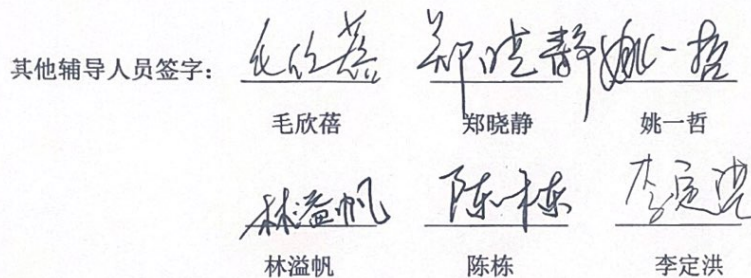 其他辅导人员签字: 毛欣蓓 郑晓静 姚一哲
毛欣蓓 郑晓静 姚一哲
林溢帆 陈栋 李定洪
林溢帆 陈栋 李定洪